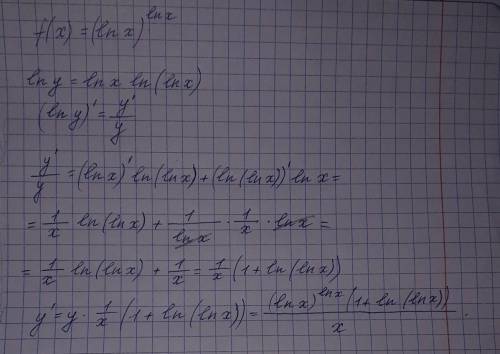 f(x) = (ln x)^{ln x}
ln y = ln x ln(ln x)
(ln y)' = y'/y
y'/y = (ln x)' ln(ln x) + (ln(ln x))' ln x =
= 1/x ln(ln x) + 1/ln x · 1/x · ln x =
= 1/x ln(ln x) + 1/x = 1/x (1 + ln(ln x))
y' = y · 1/x (1 + ln(ln x)) = (ln x)^{ln x} (1 + ln(ln x))/x .